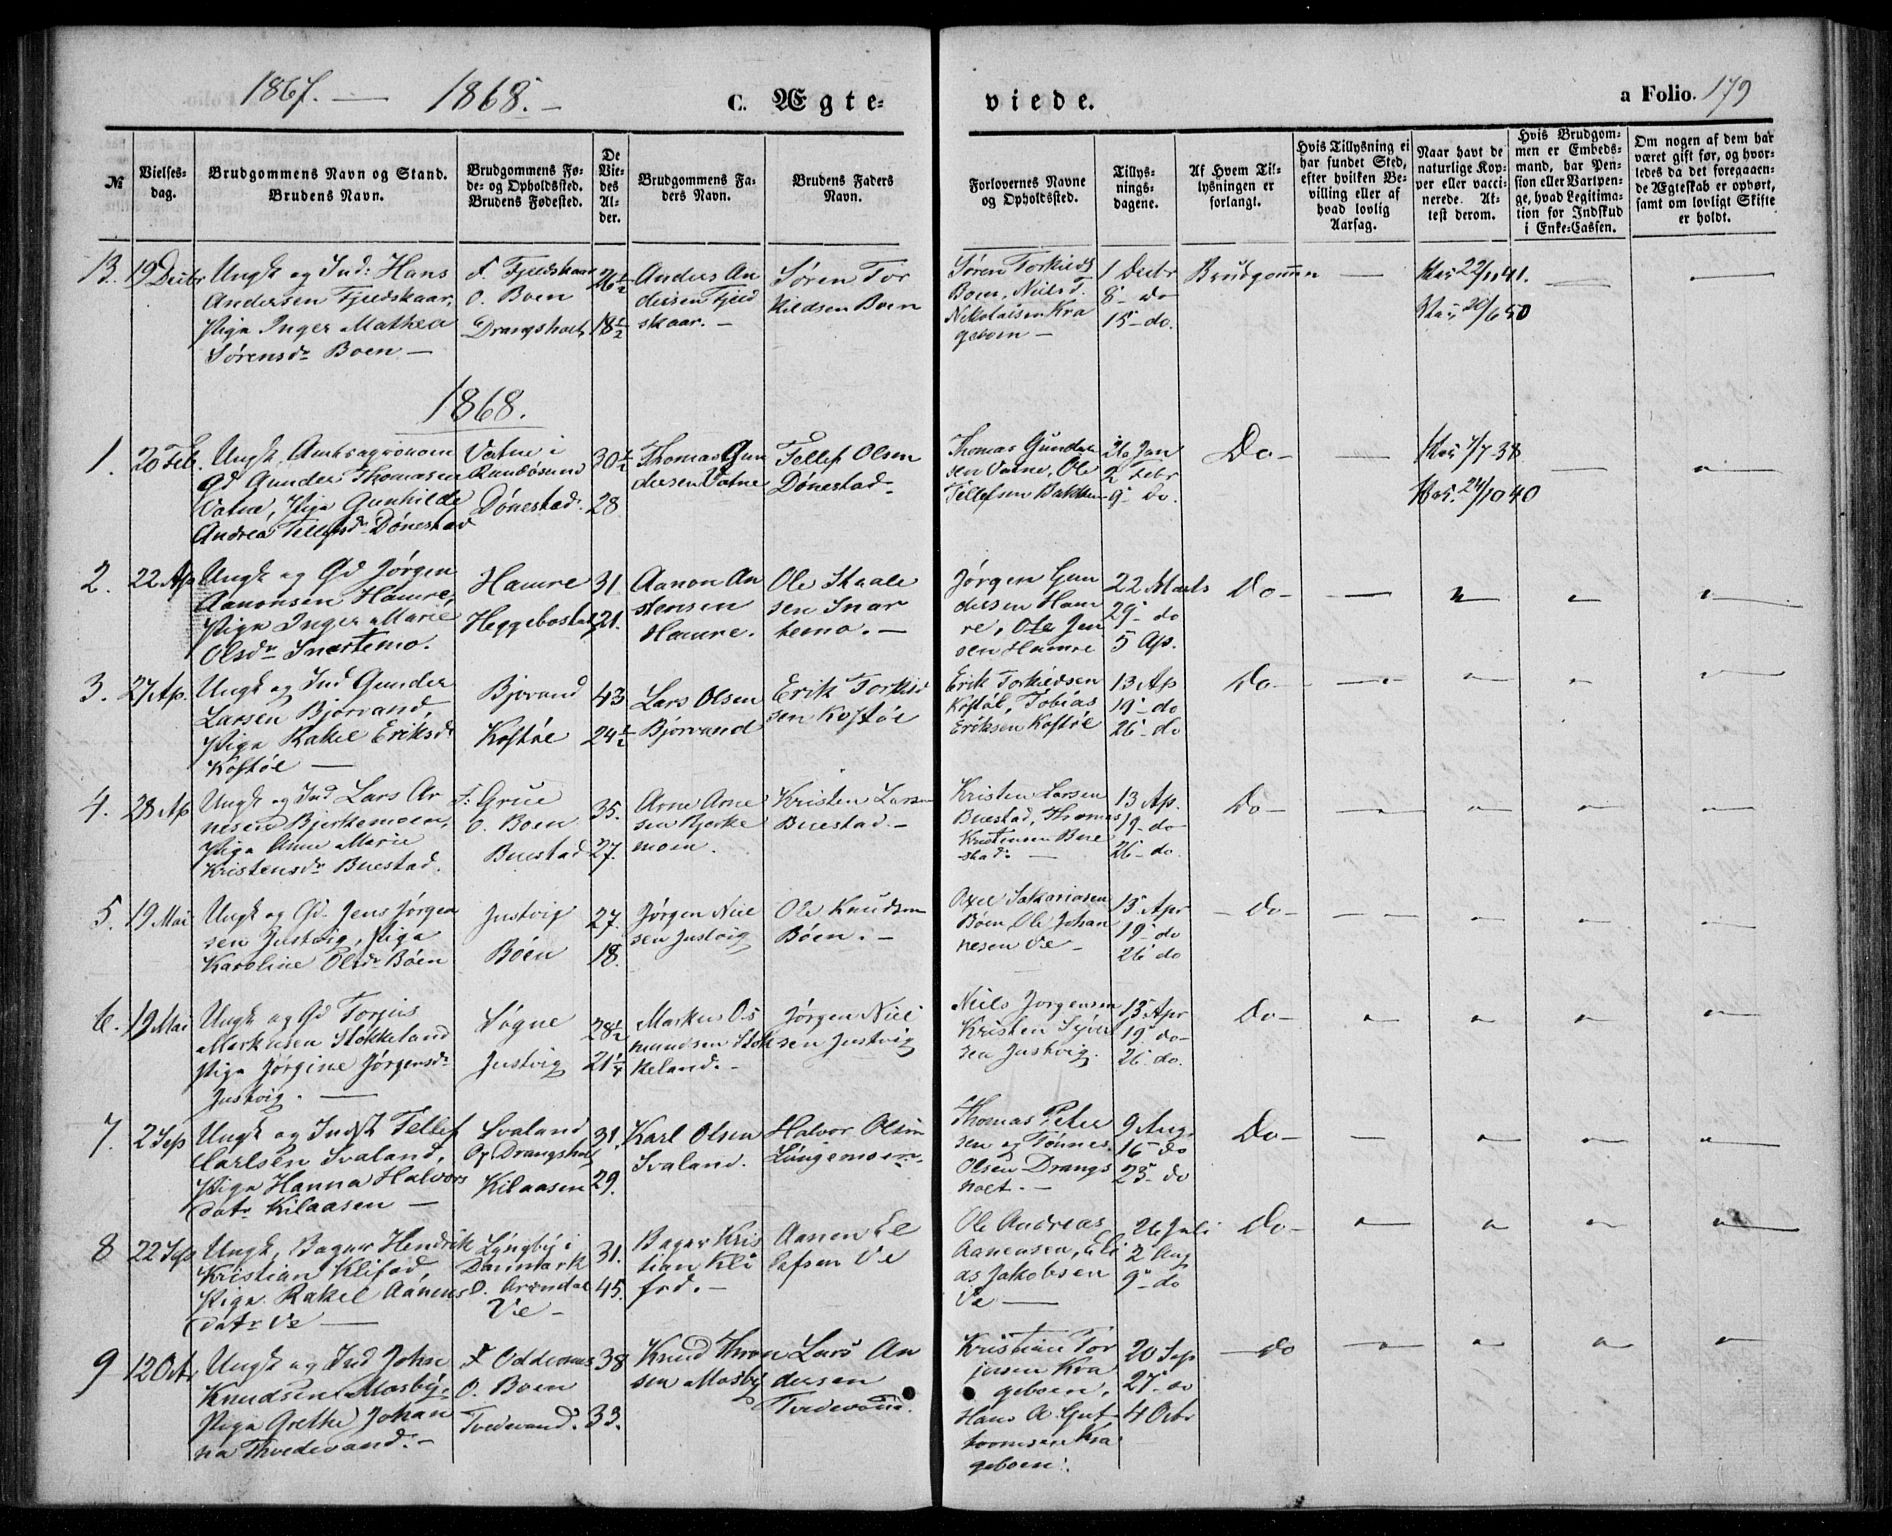 1867. — 1868. —
C. Ægte-
viede.
a Folio. 179
№
Vielses-
dag.
Brudgommens Navn og Stand.
Brudens Navn.
Brudgommens Fø-
de- og Opholdssted.
Brudens Fødested.
De
Vie-
des
Al-
der.
Brudgommens Fa-
ders Navn.
Brudens Faders
Navn.
Forlovernes Navne
og Opholdssted.
Tillys-
nings-
dagene.
Af Hvem Til-
lysningen er
forlangt.
Hvis Tillysning ei
har fundet Sted,
efter hvilken Be-
villing eller af
hvad lovlig
Aarsag.
Naar havt de
naturlige Kop-
per eller vacci-
nerede. At-
test derom.
Hvis Brudgom-
men er Embeds-
mand, har Pen-
sion eller Vartpen-
ge, hvad Legitima-
tion for Indskud
i Enke-Cassen.
Om nogen af dem har
været gift før, og hvor-
ledes da det foregaaen-
de Ægteskab er ophørt,
samt om lovligt Skifte
er holdt.
13. 19 Decbr Ungk og Ind: Hans
Andersen Fjeldskaar,
Pige Inger Mathea
Sørensdr Boen —
F. Fjeldskaar
O. Boen
Drangsholt
26½
18½
Anders An
dersen Fjeld
skaar. —
Søren Tor
kildsen Boen
Søren Torkilds
Boen, Niels T.
Nikolaisen Kra
geboen —
1 Decbr
8 - do
15 - do.
Brudgommen
— 22/11 41.
20/6 50
— —
1868.
1. 20 Feb. Ungk. Amtsagronom
Gd Gunder Thomasen
Vatne, Pige Gunhilde
Andrea Tellefsdr Dønestad
Vatne i
Randøsund
Dønestad.
30½
28
Thomas Gun
dersen Vatne
Tellef Olsen
Dønestad.
Thomas Gunder
sen Vatne, Ole
Tellefsen Bakken
26 Jan
2 Febr
9 - do.
Do —
— 7/7 38
24/10 40
— "
2. 22 Ap Ungk og Gd Jørgen
Aanonsen Hamre,
Pige Inger Marie
Olsdr Snartemo.
Hamre
Heggebostad
31
21.
Aanon An
stensen
Hamre.
Ole Staale
sen Snar
temo. —
Jørgen Gun
dersen Ham
re, Ole Jen
sen Hamre
22 Marts
29 - do
5 Ap.
Do —
— " " "
3. 27 Ap. Ungk og Ind Gunder
Larsen Bjorvand,
Pige Rakel Eriksdr
Kostøl —
Bjorvand
Kostøl
43
24½
Lars Olsen
Bjorvand
Erik Torkild
sen Kostøl
Erik Torkildsen
Kostøl, Tobias
Eriksen Kostøl
13 Ap
19 - do
26 - do
Do —
— " " "
4. 28 Ap Ungk og Ind Lars Ar
nesen Bjerkemoen,
Pige Anne Marie
Kristensdr Buestad.
F. Grue
O. Boen
Buestad
35.
27.
Arne Arne
sen Bjerke
moen.
Kristen Larsen
Buestad. —
Kristen Larsen
Buestad, Thomas
Kristensen Bue
stad. —
13 Ap.
19 - do
26 - do.
Do —
— " " "
5. 19 Mai Ungk og Gd. Jens Jørgen
sen Justvig, Pige
Karoline Olsdr Bøen
Justvig
Bøen
27.
18.
Jørgen Niel
sen Justvig
Ole Knudsen
Bøen. —
Axel Sakariasen
Bøen, Ole Johan
nesen Ve —
13 Apr
19 - do
26 do
— do —
— " " "
6. 19 Mai Ungk og Gd Torjus
Markusen Stokkeland
Pige Jørgine Jørgensdr
Justvig. —
Søgne
Justvig
28½
21¼
Markus Os
mundsen Stok
keland. —
Jørgen Niel
sen Justvig
Niels Jørgensen
Kristen Syver
sen Justvig.
13 Apr
19 - do
26 - do.
Do —
" " " "
7. 2 Sep Ungk og Indst Tellef
Carlsen Svaland,
Pige Hanna Halvors
datr Kilaasen —
Svaland
Op Drangsholt
Kilaasen
31.
29.
Karl Olsen
Svaland.
Halvor Olsen
Lingemoen.
Thomas Peter
sen og Tønnes
Olsen Drangs
holt. —
9 Aug.
16 - do
23 - do
Do —
— " " "
8 22 Sep Ungk, Bager Hendrik
Kristian Klifod,
Pige Rakel Aanens
datr Ve —
Lyngby i
Danmark
O. Arendal
Ve —
31.
45.
Bager Kris
tian Kli
fod. —
Aanen El
lefsen Ve
Ole Andreas
Aanensen, Eli
as Jakobsen
Ve —
26 Juli
2 Aug
9 - do
Do —
" " " "
9 12 Oct. Ungk og Ind John
Knudsen Mosby,
Pige Grethe Johan
na Thvedevand. —
F Oddernes
O. Boen
Tvedevand.
38
33.
Knud Thron
sen Mosby
Lars An
dersen
Tvedevand.
Kristian Tor
jusen Kra
geboen,
Hans A Gut
tormsen Kra
geboen.
20 Sep
27 - do
4 Octr
— do
" " " "